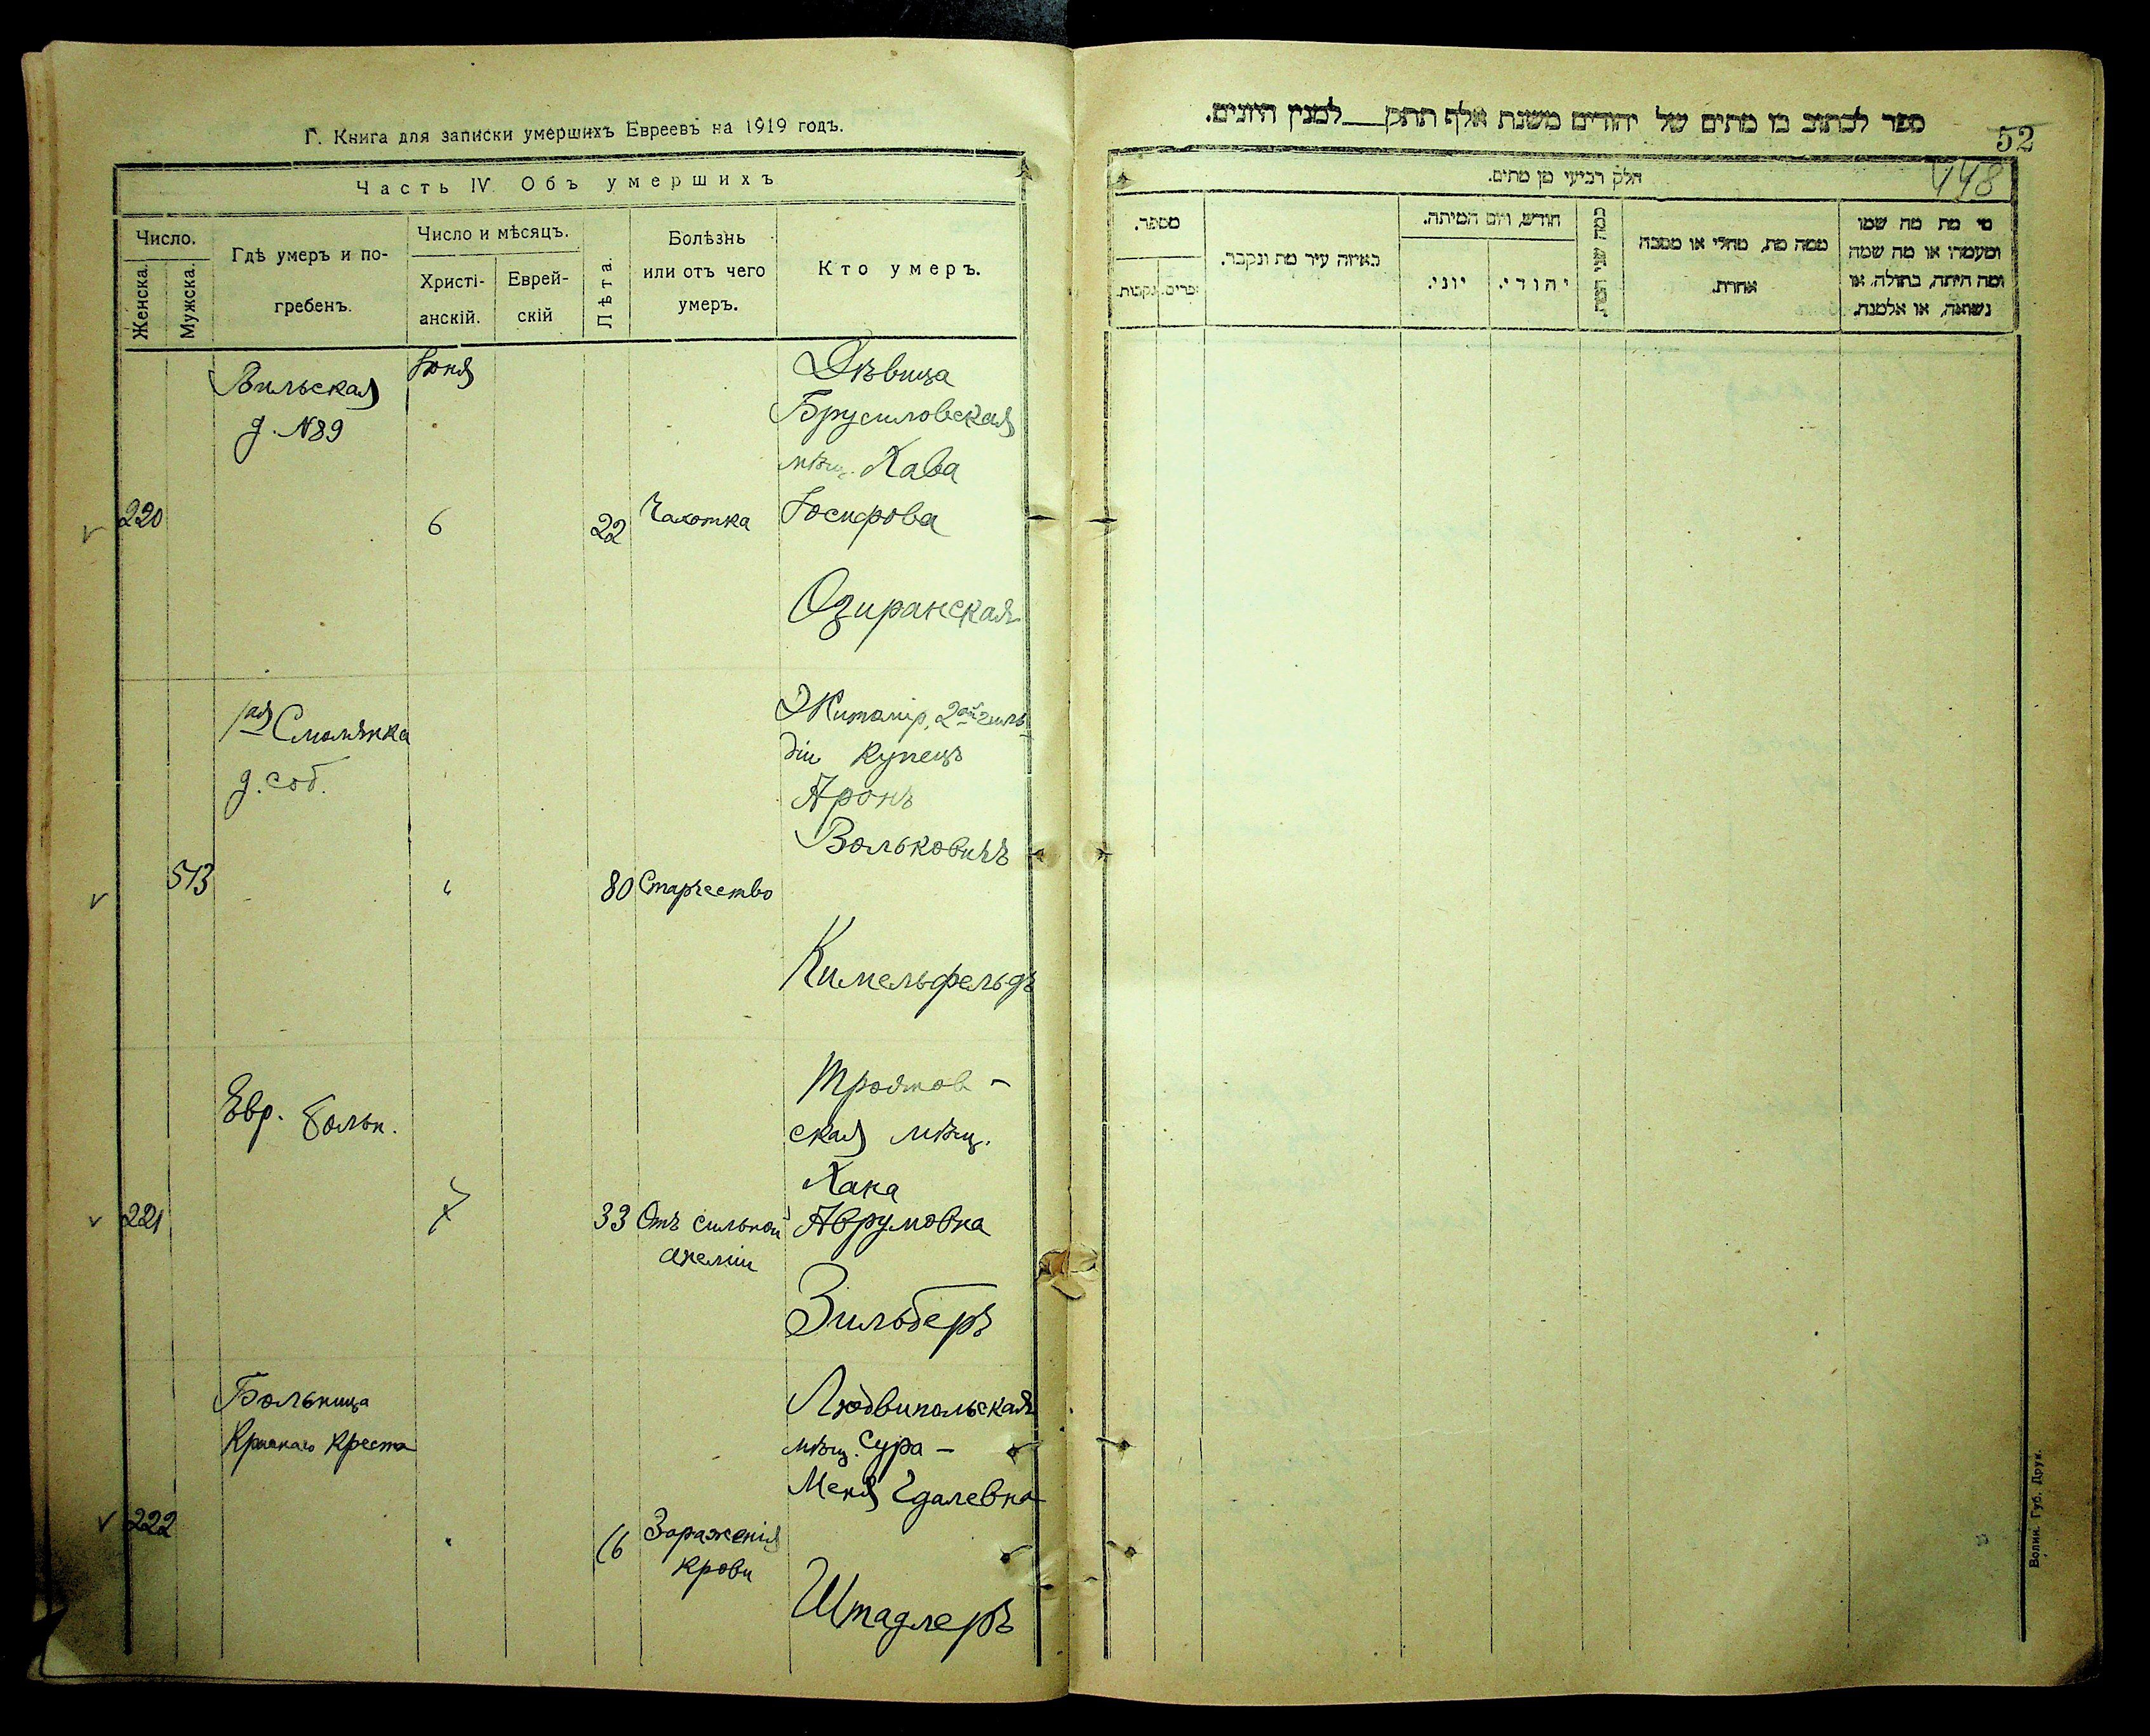 Г. Книга для записки умершихъ Евреевъ на 1919 годъ.
Часть IV. Объ умершихъ
Число.
Женска.
Мужска.
Гдѣ умеръ и по-
гребенъ.
Число и мѣсяцъ.
Христі-
анскій.
Еврей-
скій
Лѣта.
Болѣзнь
или отъ чего
умеръ.
Кто умеръ.
220
Вильская
д. №89
Іюня
6
22
Чахотка
Дѣвица
Брусиловская
мѣщ. Хава
Іосифова
Озиранская
513
1ая Смолянка
д. соб.
"
80
Старчество
Житомір. 2ой гиль-
діи купецъ
Аронъ
Вольковичъ
Кимельфельдъ
221
Евр. больн.
7
33
Отъ сильной
анеміи
Троянов-
ская мѣщ.
Хана
Аврумовна
Зильберъ
222
Больница
Краснаго Креста
"
16
Зараженія
крови
Людвипольская
мѣщ. Сура-
Меня Гдалевна
Штадлеръ
ספר לכתוב בו מתים של יהודים משנת אלף תתק___למנין היונים.
52
148
חלק רביעי מן מתים.
מספר.
זכרים.
נקבות.
באיזה עיר מת ונקבר.
חודש, ויום המיתה.
יוני.
יהודי.
כמה שני המת.
ממה מת, מחלי או מסבה
אחרת.
מי מת מה שמו
ומעמדו או מה שמה
ומה היתה, בתולה, או
נשואה, או אלמנה.
Волин. Губ. Друк.